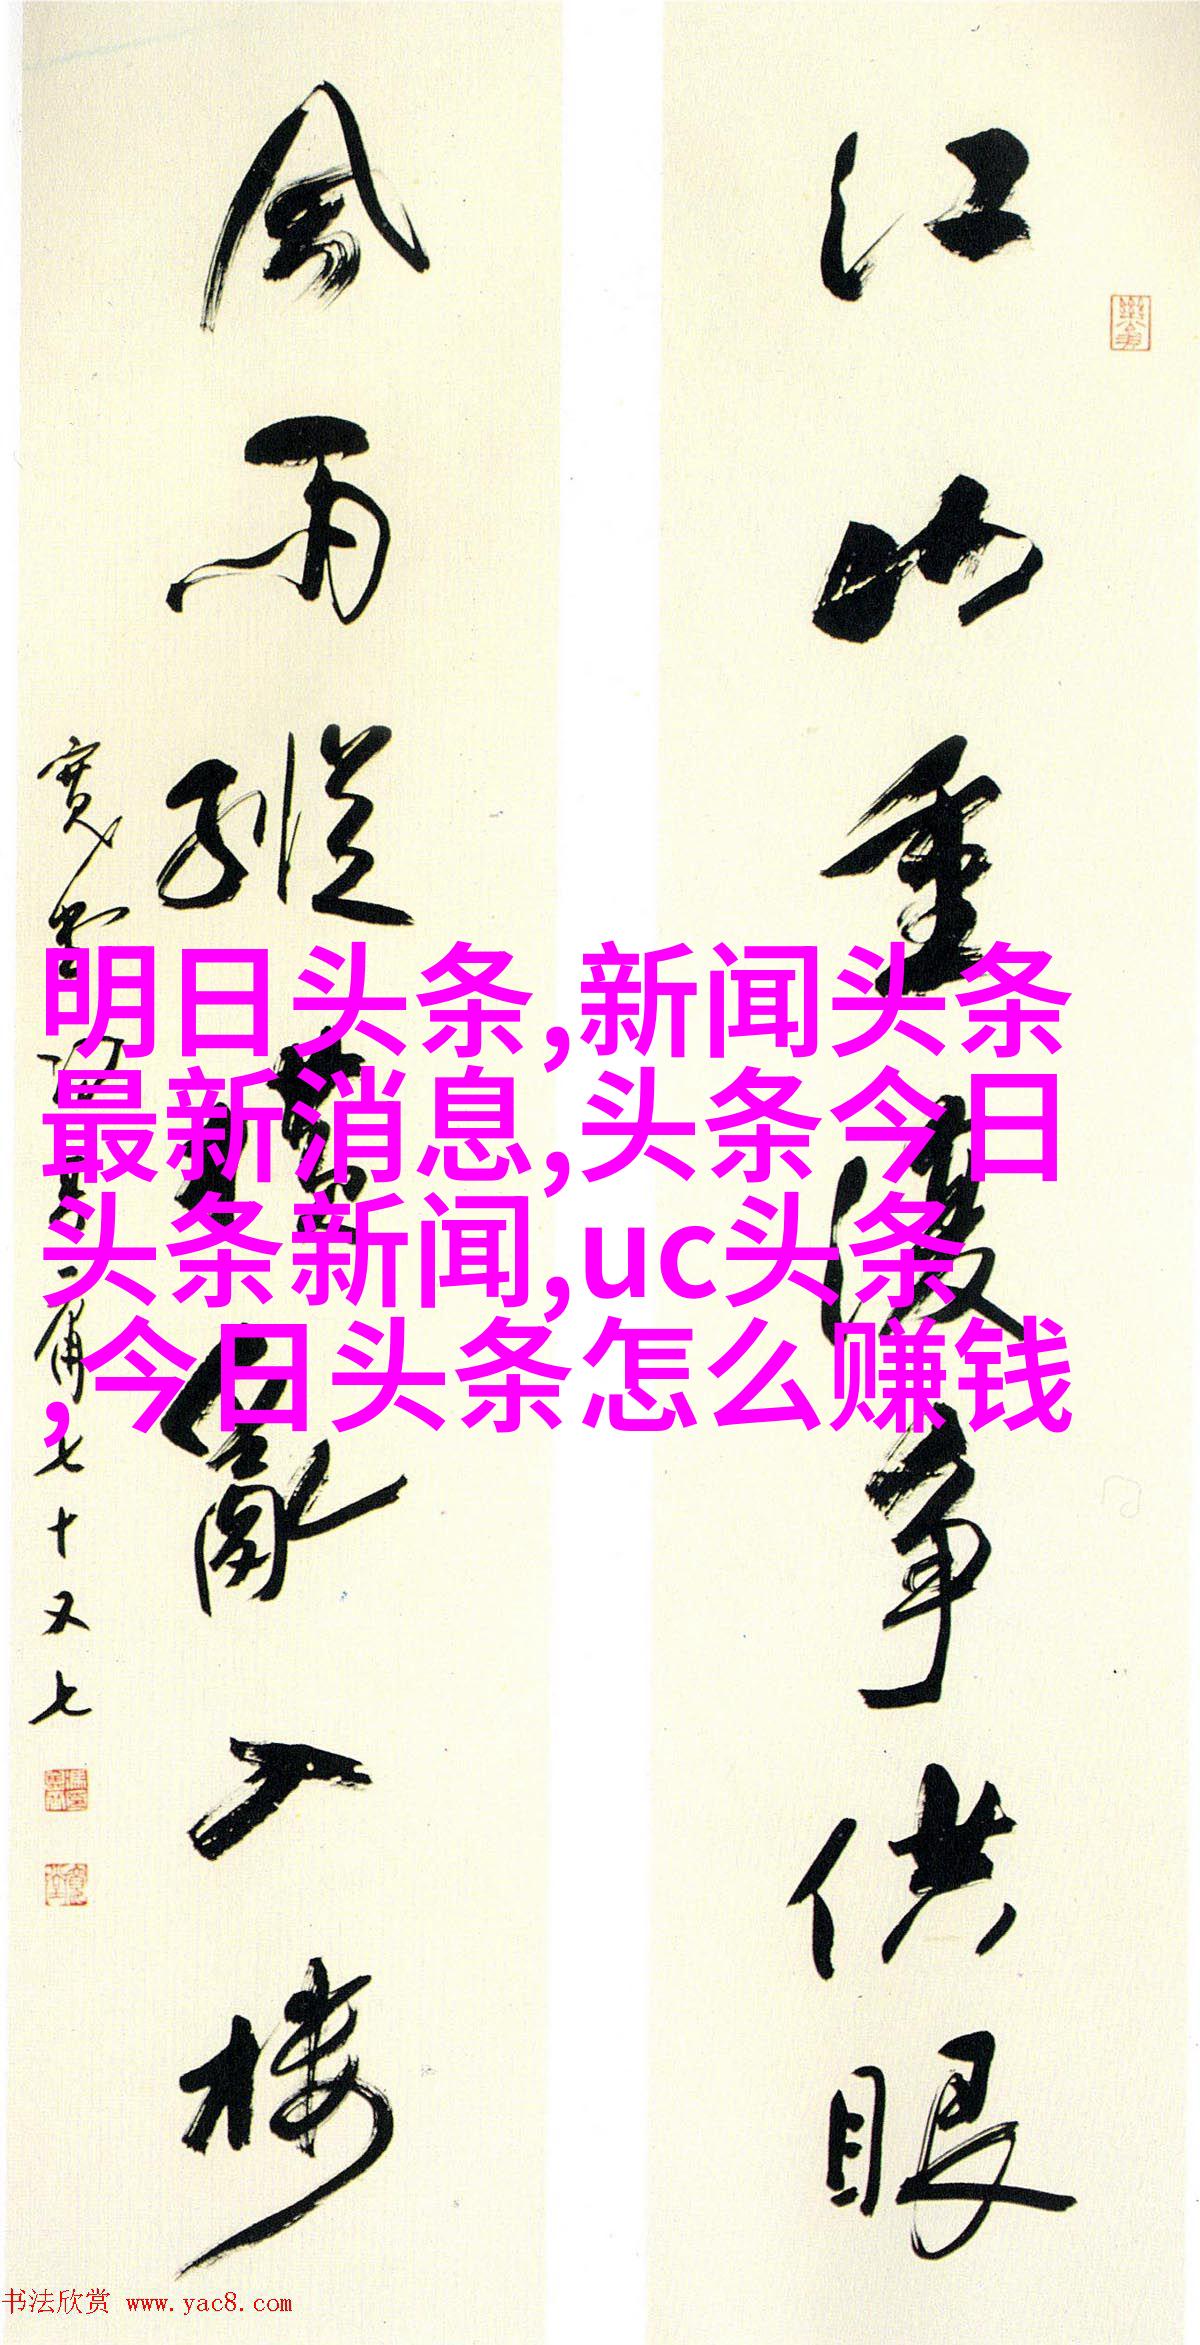 江山重複争供眼
風雨縱橫亂入樓
七十又七
明日头条,新闻头条
最新消息,头条今日
头条新闻,uc头条
,今日头条怎么赚钱
书法欣赏 www.yac8.com